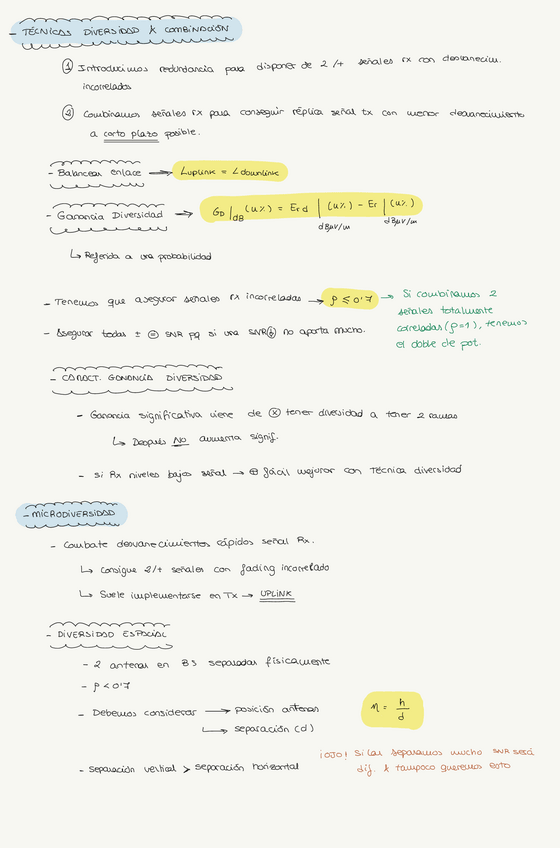 - TÉCNICAS DIVERSIDAD & COMBINACIÓN
① Introducimos redundancia para disponer de 2/+ señales rx con desvanecim.
incorrelados
② Combinamos señales rx para conseguir réplica señal tx con menor desvanecimiento
a corto plazo posible.
- Balancear enlace → Luplink = Ldownlink
- Ganancia Diversidad → GD|dB (u%) = Erd|dBμV/m (u%) - Er|dBμV/m (u%)
↳ Referida a una probabilidad
- Tenemos que asegurar señales rx incorreladas → ρ ≤ 0'7 → Si combinamos 2
señales totalmente
correladas (ρ=1), tenemos
el doble de pot.
- Asegurar todas ± = SNR pq si una SNR↓ no aporta mucho.
- CARACT. GANANCIA DIVERSIDAD
- Ganancia significativa viene de tener diversidad a tener 2 ramas
↳ Después NO aumenta signif.
- Si Rx niveles bajos señal → ⊕ fácil mejorar con Técnica diversidad
- MICRODIVERSIDAD
- Combate desvanecimientos rápidos señal Rx.
↳ Consigue 2/+ señales con fading incorrelado
↳ Suele implementarse en Tx → UPLINK
- DIVERSIDAD ESPACIAL
- 2 antenas en BS separadas físicamente
- ρ < 0'7
- Debemos considerar → posición antenas
↳ separación (d)
η = h/d
- Separación vertical > separación horizontal
¡OJO! Si las separamos mucho SNR será
dif. & tampoco queremos esto